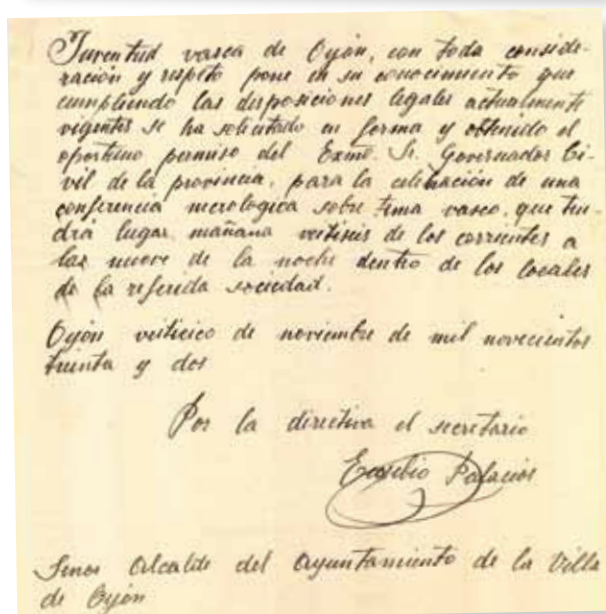 Juventud vasca de Oyón, con toda conside-
ración y respeto pone en su conocimiento que
cumpliendo las disposiciones legales actualmente
vigentes se ha solicitado en forma y obtenido el
oportuno permiso del Exmo. Sr. Governador Ci-
vil de la provincia, para la celebración de una
conferencia necrologica sobre tema vasco, que ten
drá lugar mañana veitiseis de los corrientes a
las nueve de la noche dentro de los locales
de la referida sociedad.
Oyón veiticico de noviembre de mil novecientos
treinta y dos
Por la directiva el secretario
Eusebio Palacios
Senor Alcalde del Ayuntamiento de la Villa
de Oyón